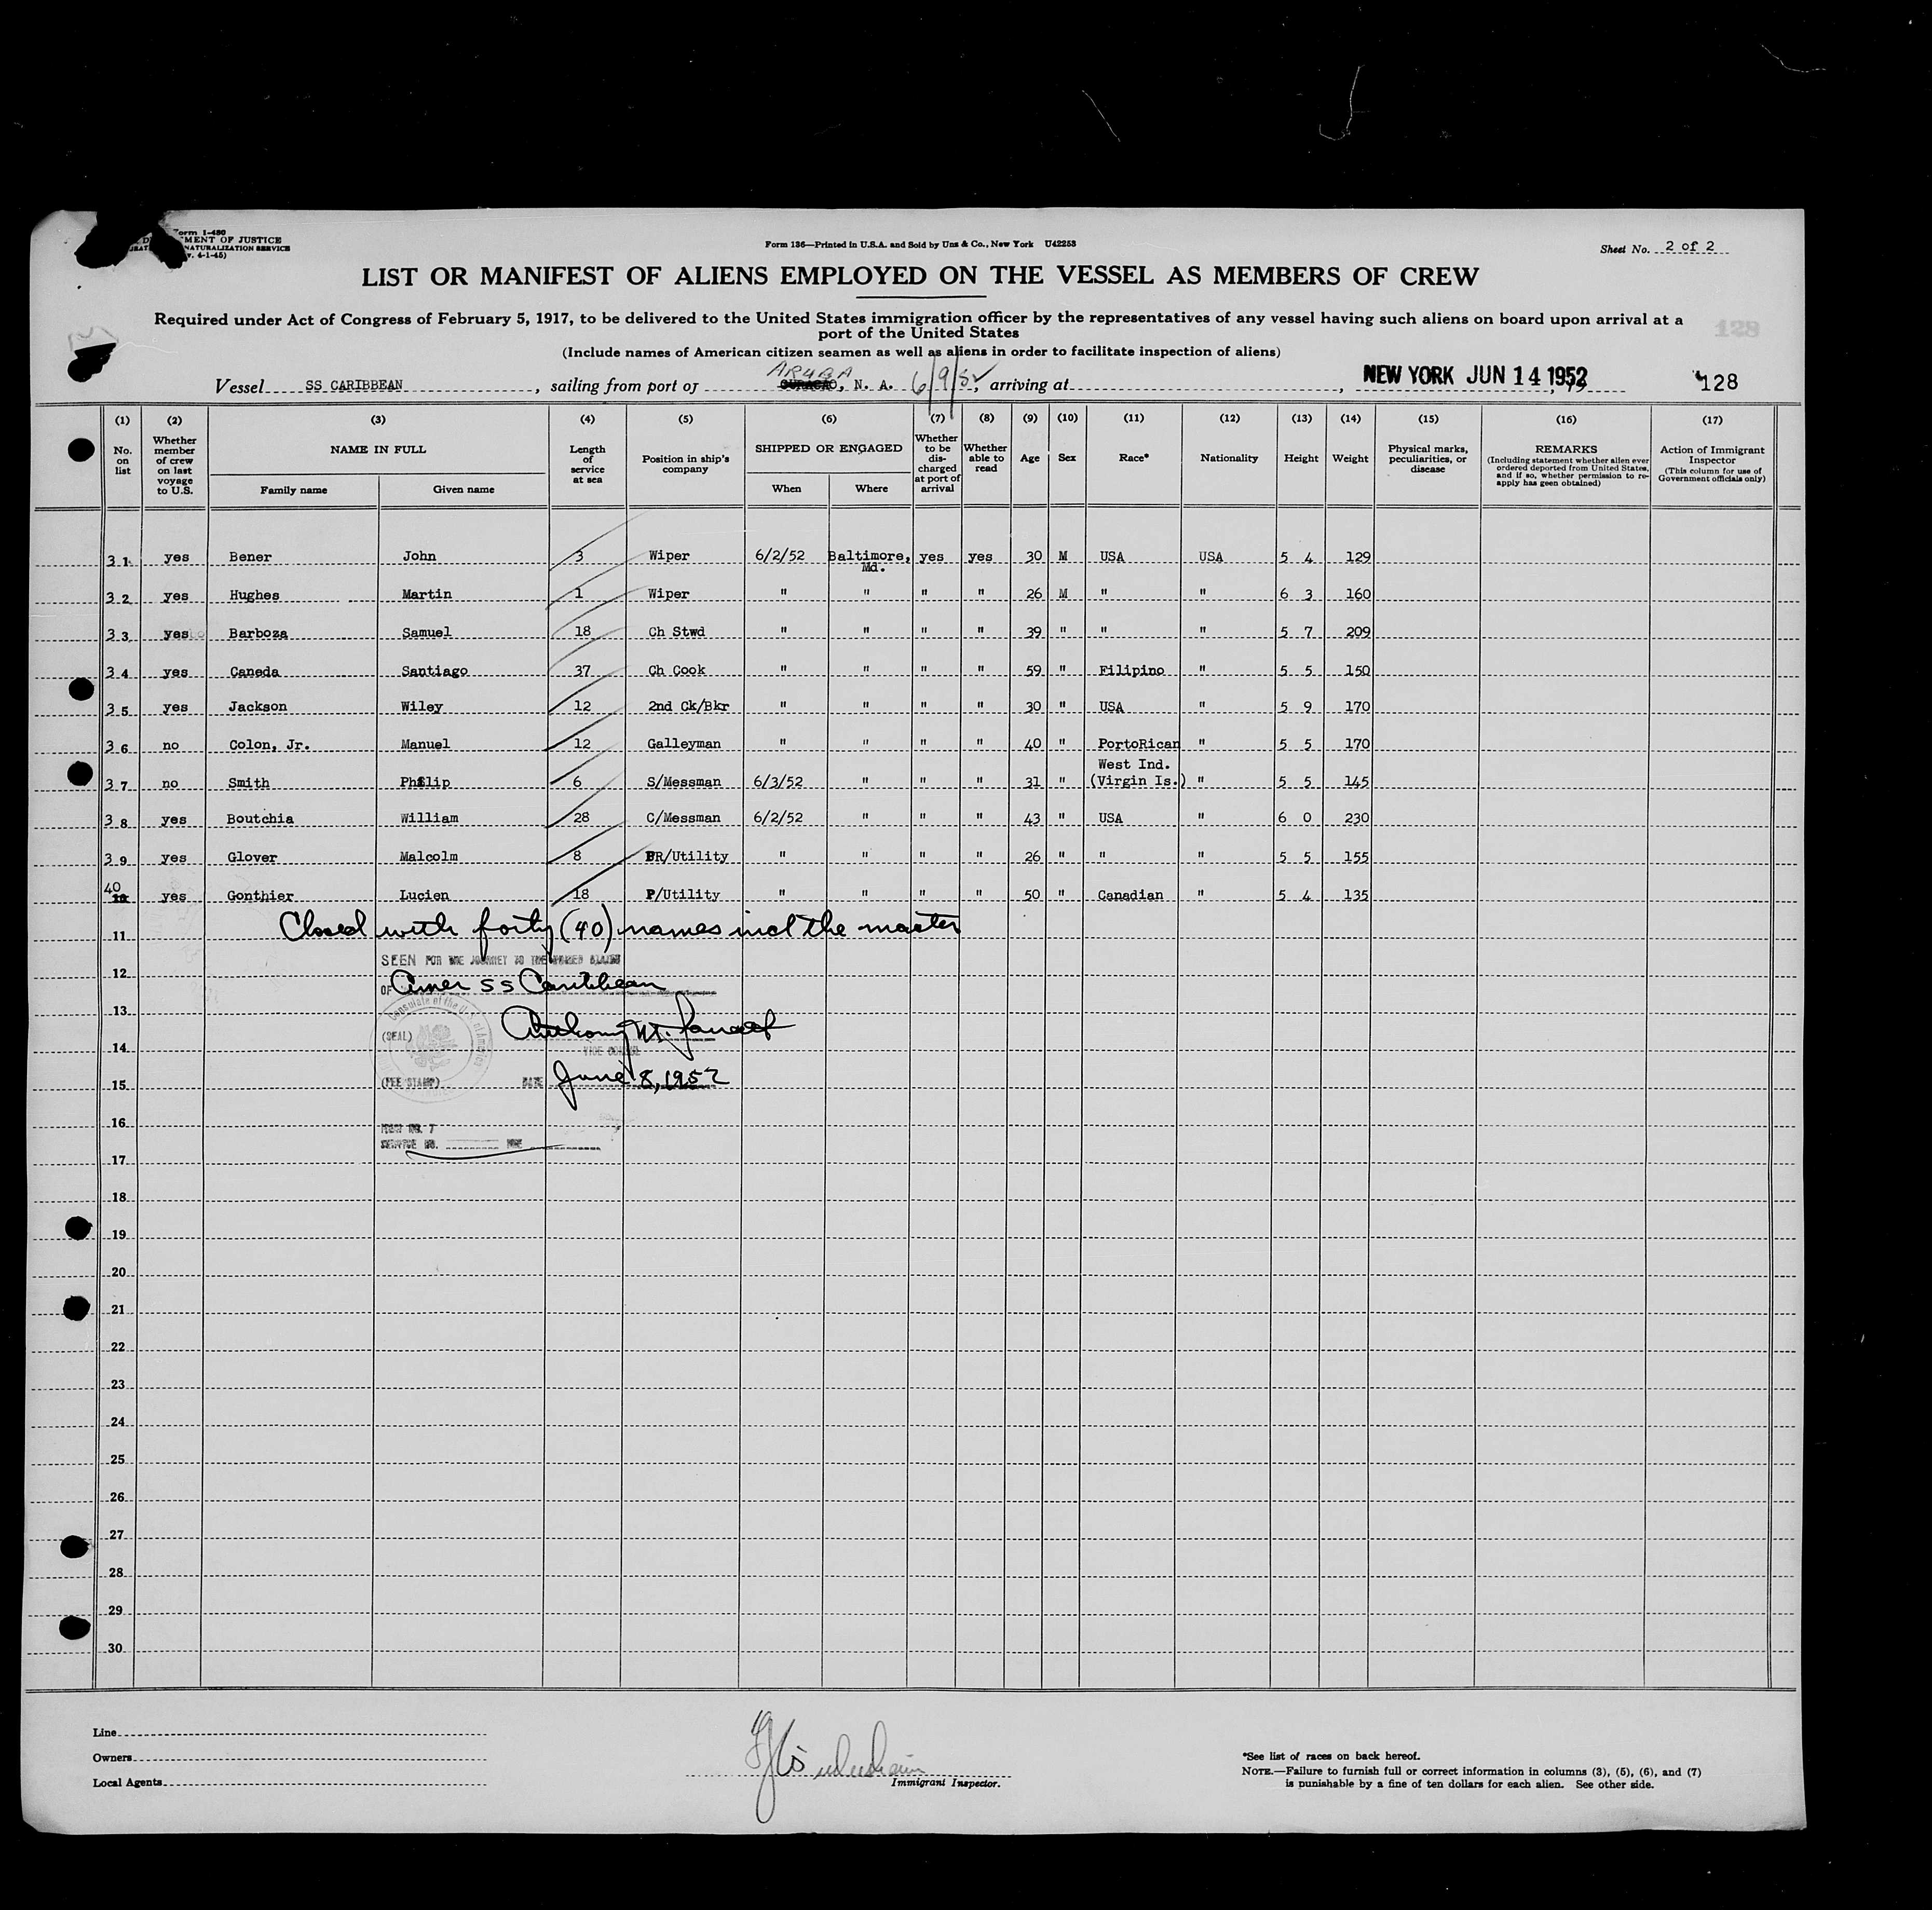 Form I-480
MENT OF JUSTICE
NATURALIZATION SERVICE
v. 4-1-45)
Form 136—Printed in U.S.A. and Sold by Unz & Co., New York U42253
Sheet No. 2 of 2
LIST OR MANIFEST OF ALIENS EMPLOYED ON THE VESSEL AS MEMBERS OF CREW
Required under Act of Congress of February 5, 1917, to be delivered to the United States immigration officer by the representatives of any vessel having such aliens on board upon arrival at a
port of the United States
128
(Include names of American citizen seamen as well as aliens in order to facilitate inspection of aliens)
ARUBA
Vessel SS CARIBBEAN, sailing from port of CURACAO, N. A. 6/9/52, arriving at, NEW YORK JUN 14 1952 128
(1) (2) (3) (4) (5) (6) (7) (8) (9) (10) (11) (12) (13) (14) (15) (16) (17)
No. on list Whether member of crew on last voyage to U.S. NAME IN FULL Family name Given name Length of service at sea Position in ship's company SHIPPED OR ENGAGED When Where Whether to be discharged at port of arrival Whether able to read Age Sex Race* Nationality Height Weight Physical marks, peculiarities, or disease REMARKS (Including statement whether alien ever ordered deported from United States, and if so, whether permission to re-apply has geen obtained) Action of Immigrant Inspector (This column for use of Government officials only)
31 yes Bener John 3 Wiper 6/2/52 Baltimore, Md. yes yes 30 M USA USA 5 4 129
32 yes Hughes Martin 1 Wiper " " " " 26 M " " 6 3 160
33 yes Barboza Samuel 18 Ch Stwd " " " " 39 " " " 5 7 209
34 yes Caneda Santiago 37 Ch Cook " " " " 59 " Filipino " 5 5 150
35 yes Jackson Wiley 12 2nd Ck/Bkr " " " " 30 " USA " 5 9 170
36 no Colon, Jr. Manuel 12 Galleyman " " " " 40 " PortoRican " 5 5 170
37 no Smith Philip 6 S/Messman 6/3/52 " " " 31 " West Ind. (Virgin Is.) " 5 5 145
38 yes Boutchia William 28 C/Messman 6/2/52 " " " 43 " USA " 6 0 230
39 yes Glover Malcolm 8 BR/Utility " " " " 26 " " " 5 5 155
40 yes Gonthier Lucien 18 P/Utility " " " " 50 " Canadian " 5 4 135
Closed with forty (40) names incl the master
11
SEEN FOR THE JOURNEY TO THE UNITED STATES
12
OF Amer SS Caribbean
13
Consulate of the U.S. of America
(SEAL) Anthony M.
14
VICE CONSUL
15
(FEE STAMP) DATE June 8, 1952
16
ITEM NO. 7
SERVICE NO.
17
18
19
20
21
22
23
24
25
26
27
28
29
30
Line
Owners
Local Agents
Immigrant Inspector.
*See list of races on back hereof.
NOTE.—Failure to furnish full or correct information in columns (3), (5), (6), and (7)
is punishable by a fine of ten dollars for each alien. See other side.